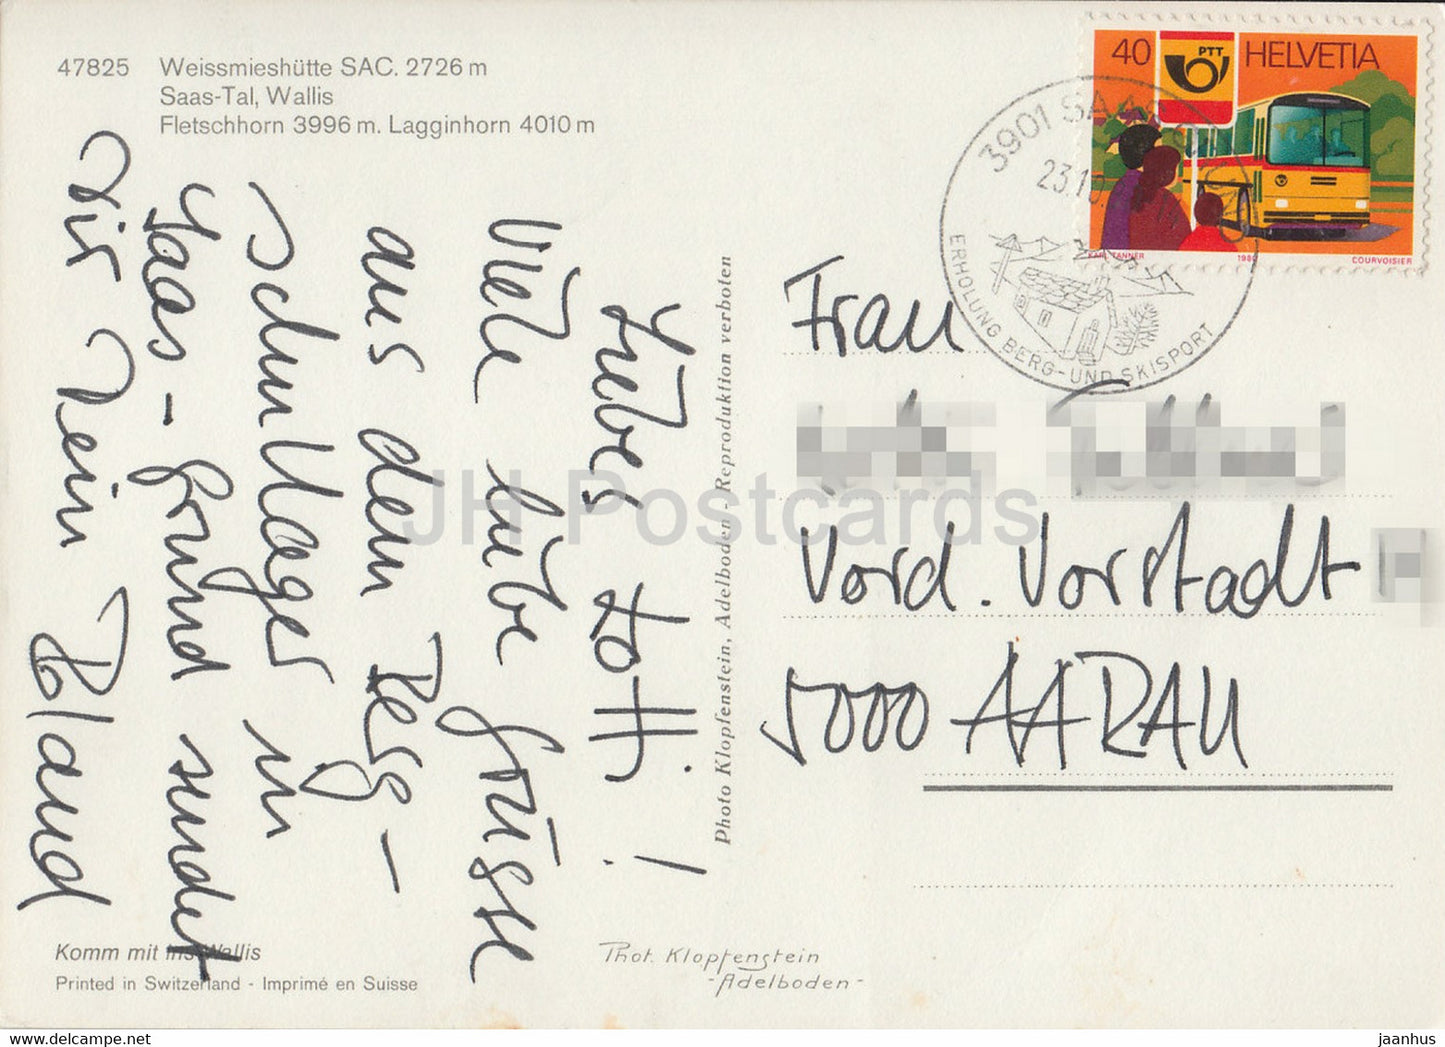 47825 Weissmieshütte SAC. 2726 m
Saas-Tal, Wallis
Fletschhorn 3996 m. Lagginhorn 4010 m
Liebes Lotti!
Viele liebe Grüsse
aus dem Berg-
schullager in
Saas-Grund sendet
Dir Dein Roland
Komm mit ins Wallis
Printed in Switzerland - Imprimé en Suisse
Photo Klopfenstein, Adelboden - Reproduktion verboten
Phot. Klopfenstein
-Adelboden-
40 PTT HELVETIA
KARL TANNER 1980 COURVOISIER
3901 SAAS
23.10.
ERHOLUNG BERG-UND SKISPORT
Frau
Vord. Vorstadt
5000 AARAU
JH Postcards
jaanhus.com
https://jaanhus.myshopify.com